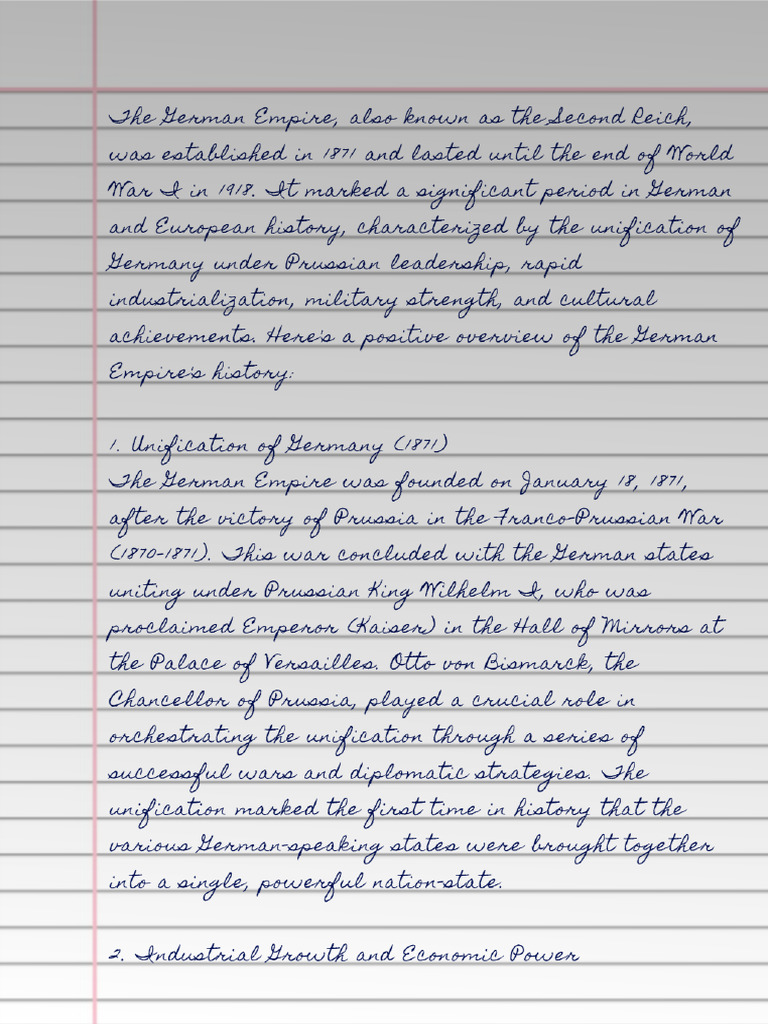 The German Empire, also known as the Second Reich,
was established in 1871 and lasted until the end of World
War I in 1918. It marked a significant period in German
and European history, characterized by the unification of
Germany under Prussian leadership, rapid
industrialization, military strength, and cultural
achievements. Here's a positive overview of the German
Empire's history:
1. Unification of Germany (1871)
The German Empire was founded on January 18, 1871,
after the victory of Prussia in the Franco-Prussian War
(1870-1871). This war concluded with the German states
uniting under Prussian King Wilhelm I, who was
proclaimed Emperor (Kaiser) in the Hall of Mirrors at
the Palace of Versailles. Otto von Bismarck, the
Chancellor of Prussia, played a crucial role in
orchestrating the unification through a series of
successful wars and diplomatic strategies. The
unification marked the first time in history that the
various German-speaking states were brought together
into a single, powerful nation-state.
2. Industrial Growth and Economic Power